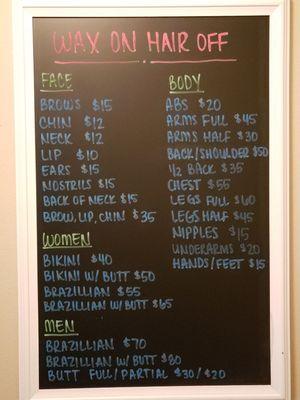 WAX ON HAIR OFF
FACE
BROWS $15
CHIN $12
NECK $12
LIP $10
EARS $15
NOSTRILS $15
BACK OF NECK $15
BROW, LIP, CHIN $35
WOMEN
BIKINI $40
BIKINI W/ BUTT $50
BRAZILLIAN $55
BRAZILLIAN W/ BUTT $65
MEN
BRAZILLIAN $70
BRAZILLIAN W/ BUTT $80
BUTT FULL/PARTIAL $30/$20
BODY
ABS $20
ARMS FULL $45
ARMS HALF $30
BACK/SHOULDER $50
1/2 BACK $35
CHEST $55
LEGS FULL $60
LEGS HALF $45
NIPPLES $15
UNDERARMS $20
HANDS/FEET $15